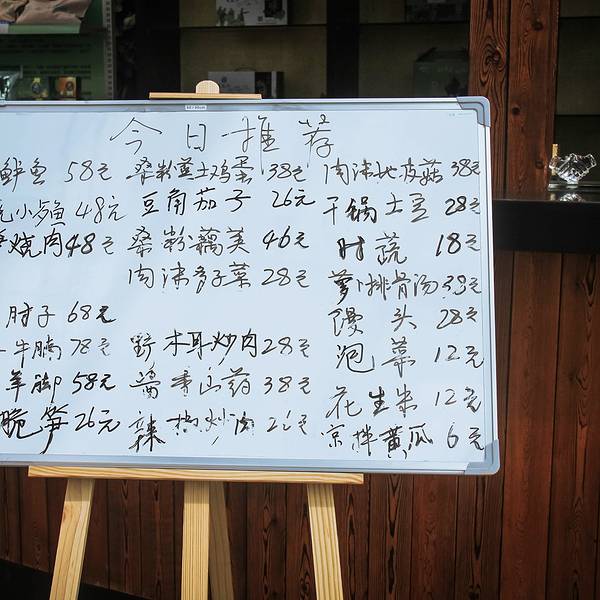 今日推荐
鲜鱼 58元 桑粉蒸土鸡蛋 38元 肉沫地皮菇 38元
小鱼 48元 豆角茄子 26元 干锅土豆 28元
烧肉 48元 桑粉藕夹 46元 时蔬 18元
肉沫茄子菜 28元 萝卜排骨汤 38元
肘子 68元 馒头 28元
牛腩 78元 野木耳炒肉 28元 泡菜 12元
羊脚 58元 山药 38元 花生米 12元
脆笋 26元 辣椒炒肉 26元 凉拌黄瓜 6元